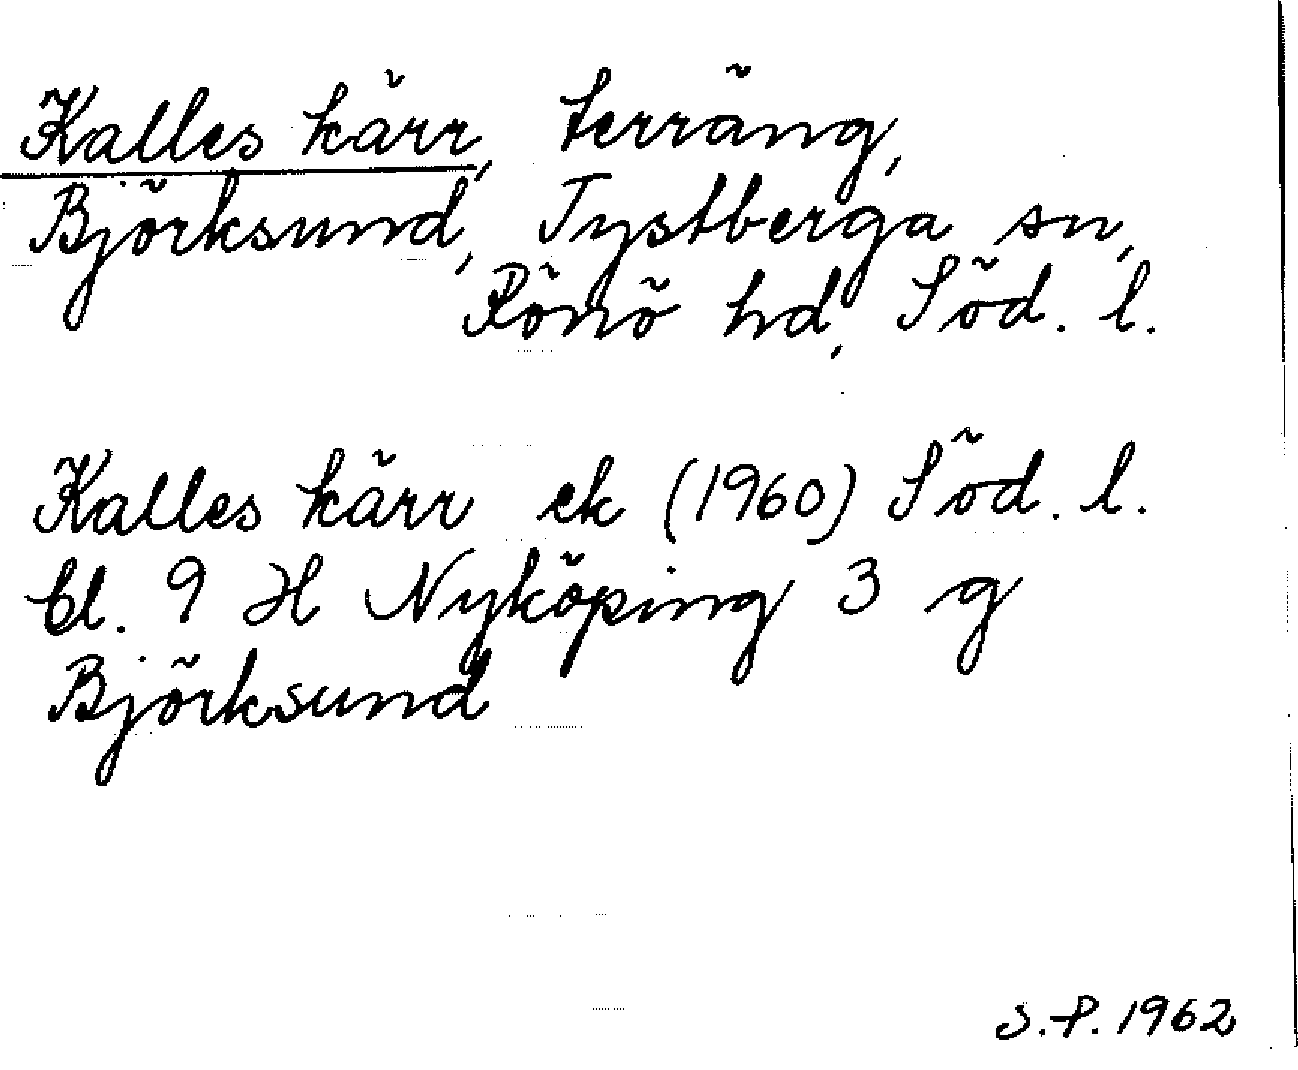 Kalles kärr, terräng,
Björksund, Tystberga sn,
Rönö hd, Söd. l.
Kalles kärr ek (1960) Söd. l.
bl. 9 H Nyköping 3 g
Björksund
S.P. 1962